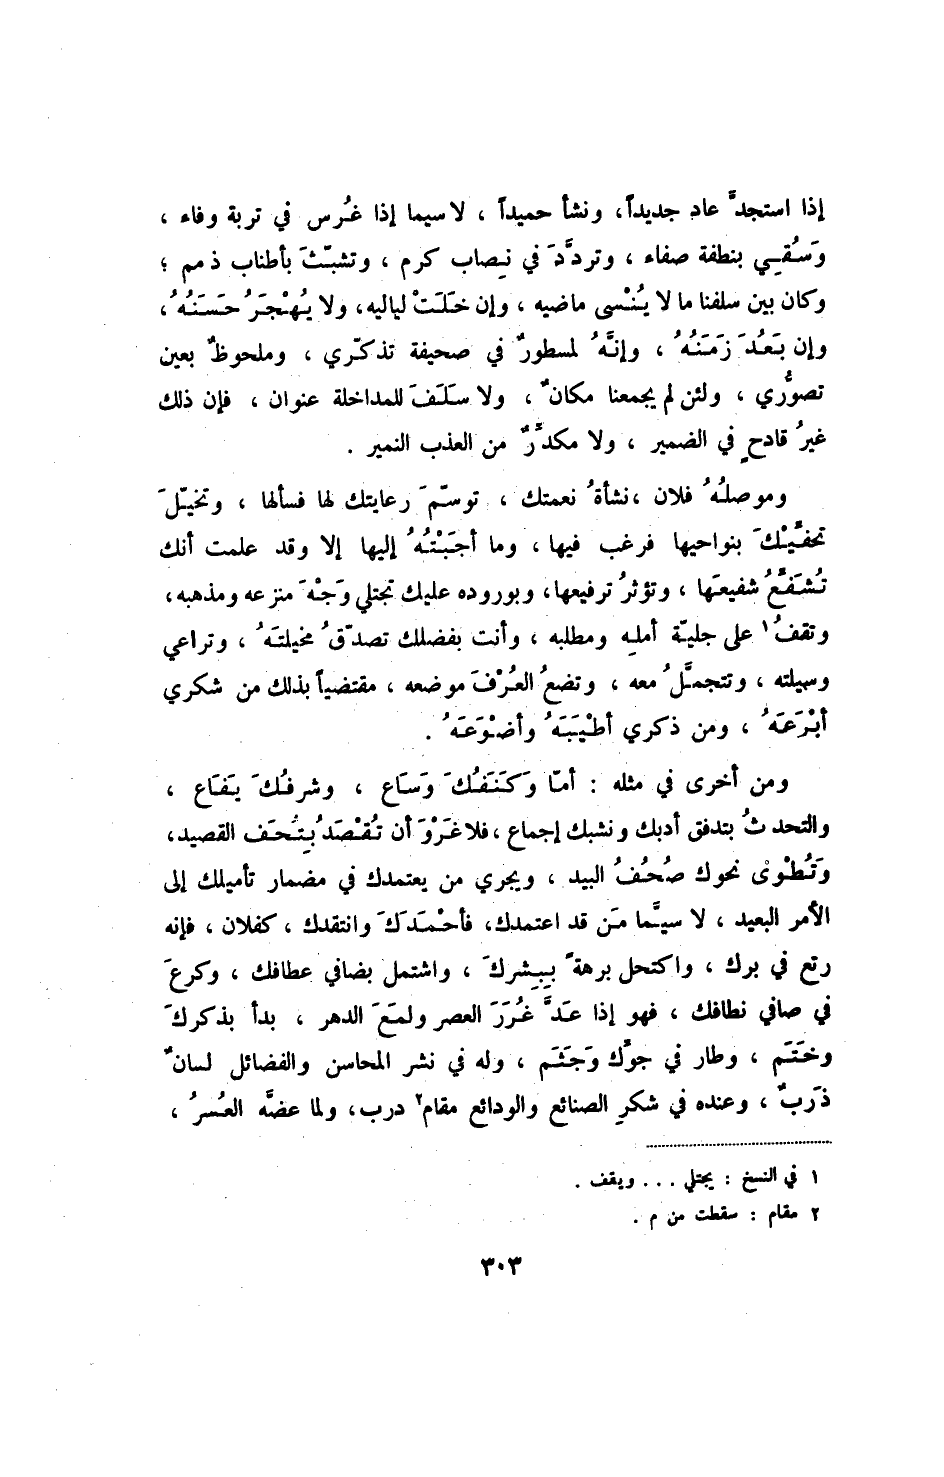 إذا استجدَّ عاد جديداً، ونشأ حميداً ، لا سيما إذا غُرس في تربة وفاء ،
وَسُقِي بنطفة صفاء ، وتردَّدَ في نِصاب كرم ، وتشبّثَ بأطناب ذمم ؛
وكان بين سلفنا ما لا يُنْسى ماضيه ، وإن خَلَتْ لياليه، ولا يُهْجَرُ حَسَنُهُ،
وإن بَعُدَ زَمَنُهُ ، وإنَّهُ لمسطورٌ في صحيفة تذكّري ، وملحوظٌ بعين
تصوُّري ، ولئن لم يجمعنا مكانٌ ، ولا سَلَفَ للمداخلة عنوان ، فإن ذلك
غيرُ قادحٍ في الضمير ، ولا مكدِّرٌ من العذب النمير .
وموصلُهُ فلان ،نشأةُ نعمتك ، توسّمَ رعايتك لها فسألها ، وتخيّلَ
تحفِّيْكَ بنواحيها فرغب فيها ، وما أجَبْتُهُ إليها إلا وقد علمت أنك
تُشَفِّعُ شفيعَها ، وتؤثرُ ترفيعها، وبوروده عليك تجتلي وَجْهَ منزعه ومذهبه،
وتقفُ١ على جليّة أملِه ومطلبه ، وأنت بفضلك تصدّقُ مخيلتَهُ ، وتراعي
وسيلته ، وتتجمَّلُ معه ، وتضعُ العُرْفَ موضعه ، مقتضياً بذلك من شكري
أبْرَعَهُ ، ومن ذكري أطْيَبَهُ وأضْوَعَهُ .
ومن أخرى في مثله : أمّا وَكَنَفُكَ وَسَاع ، وشرفُكَ يَفَاع ،
والتحدثُ بتدفق أدبك ونشبك إجماع ،فلا غَرْوَ أن تُقْصَدَ بِتُحَف القصيد،
وَتُطْوى نحوك صُحُفُ البيد ، ويجري من يعتمدك في مضمار تأميلك إلى
الأمر البعيد ، لا سيَّما مَن قد اعتمدك، فأحْمَدَكَ وانتقدك ، كفلان ، فإنه
رتع في برك ، واكتحل برهةً بِبِشرك َ ، واشتمل بضافي عطافك ، وكرعَ
في صافي نطافك ، فهو إذا عَدَّ غُرَرَ العصر ولمَعَ الدهر ، بدأ بذكركَ
وختَم ، وطار في جوّك وَجَثَم ، وله في نشر المحاسن والفضائل لسانٌ
ذَربٌ ، وعنده في شكرِ الصنائع والودائع مقام٢ درب، ولما عضَّه العُسرُ ،
١ في النسخ : يجتلي . . . ويقف .
٢ مقام : سقطت من م .
٣٠٣